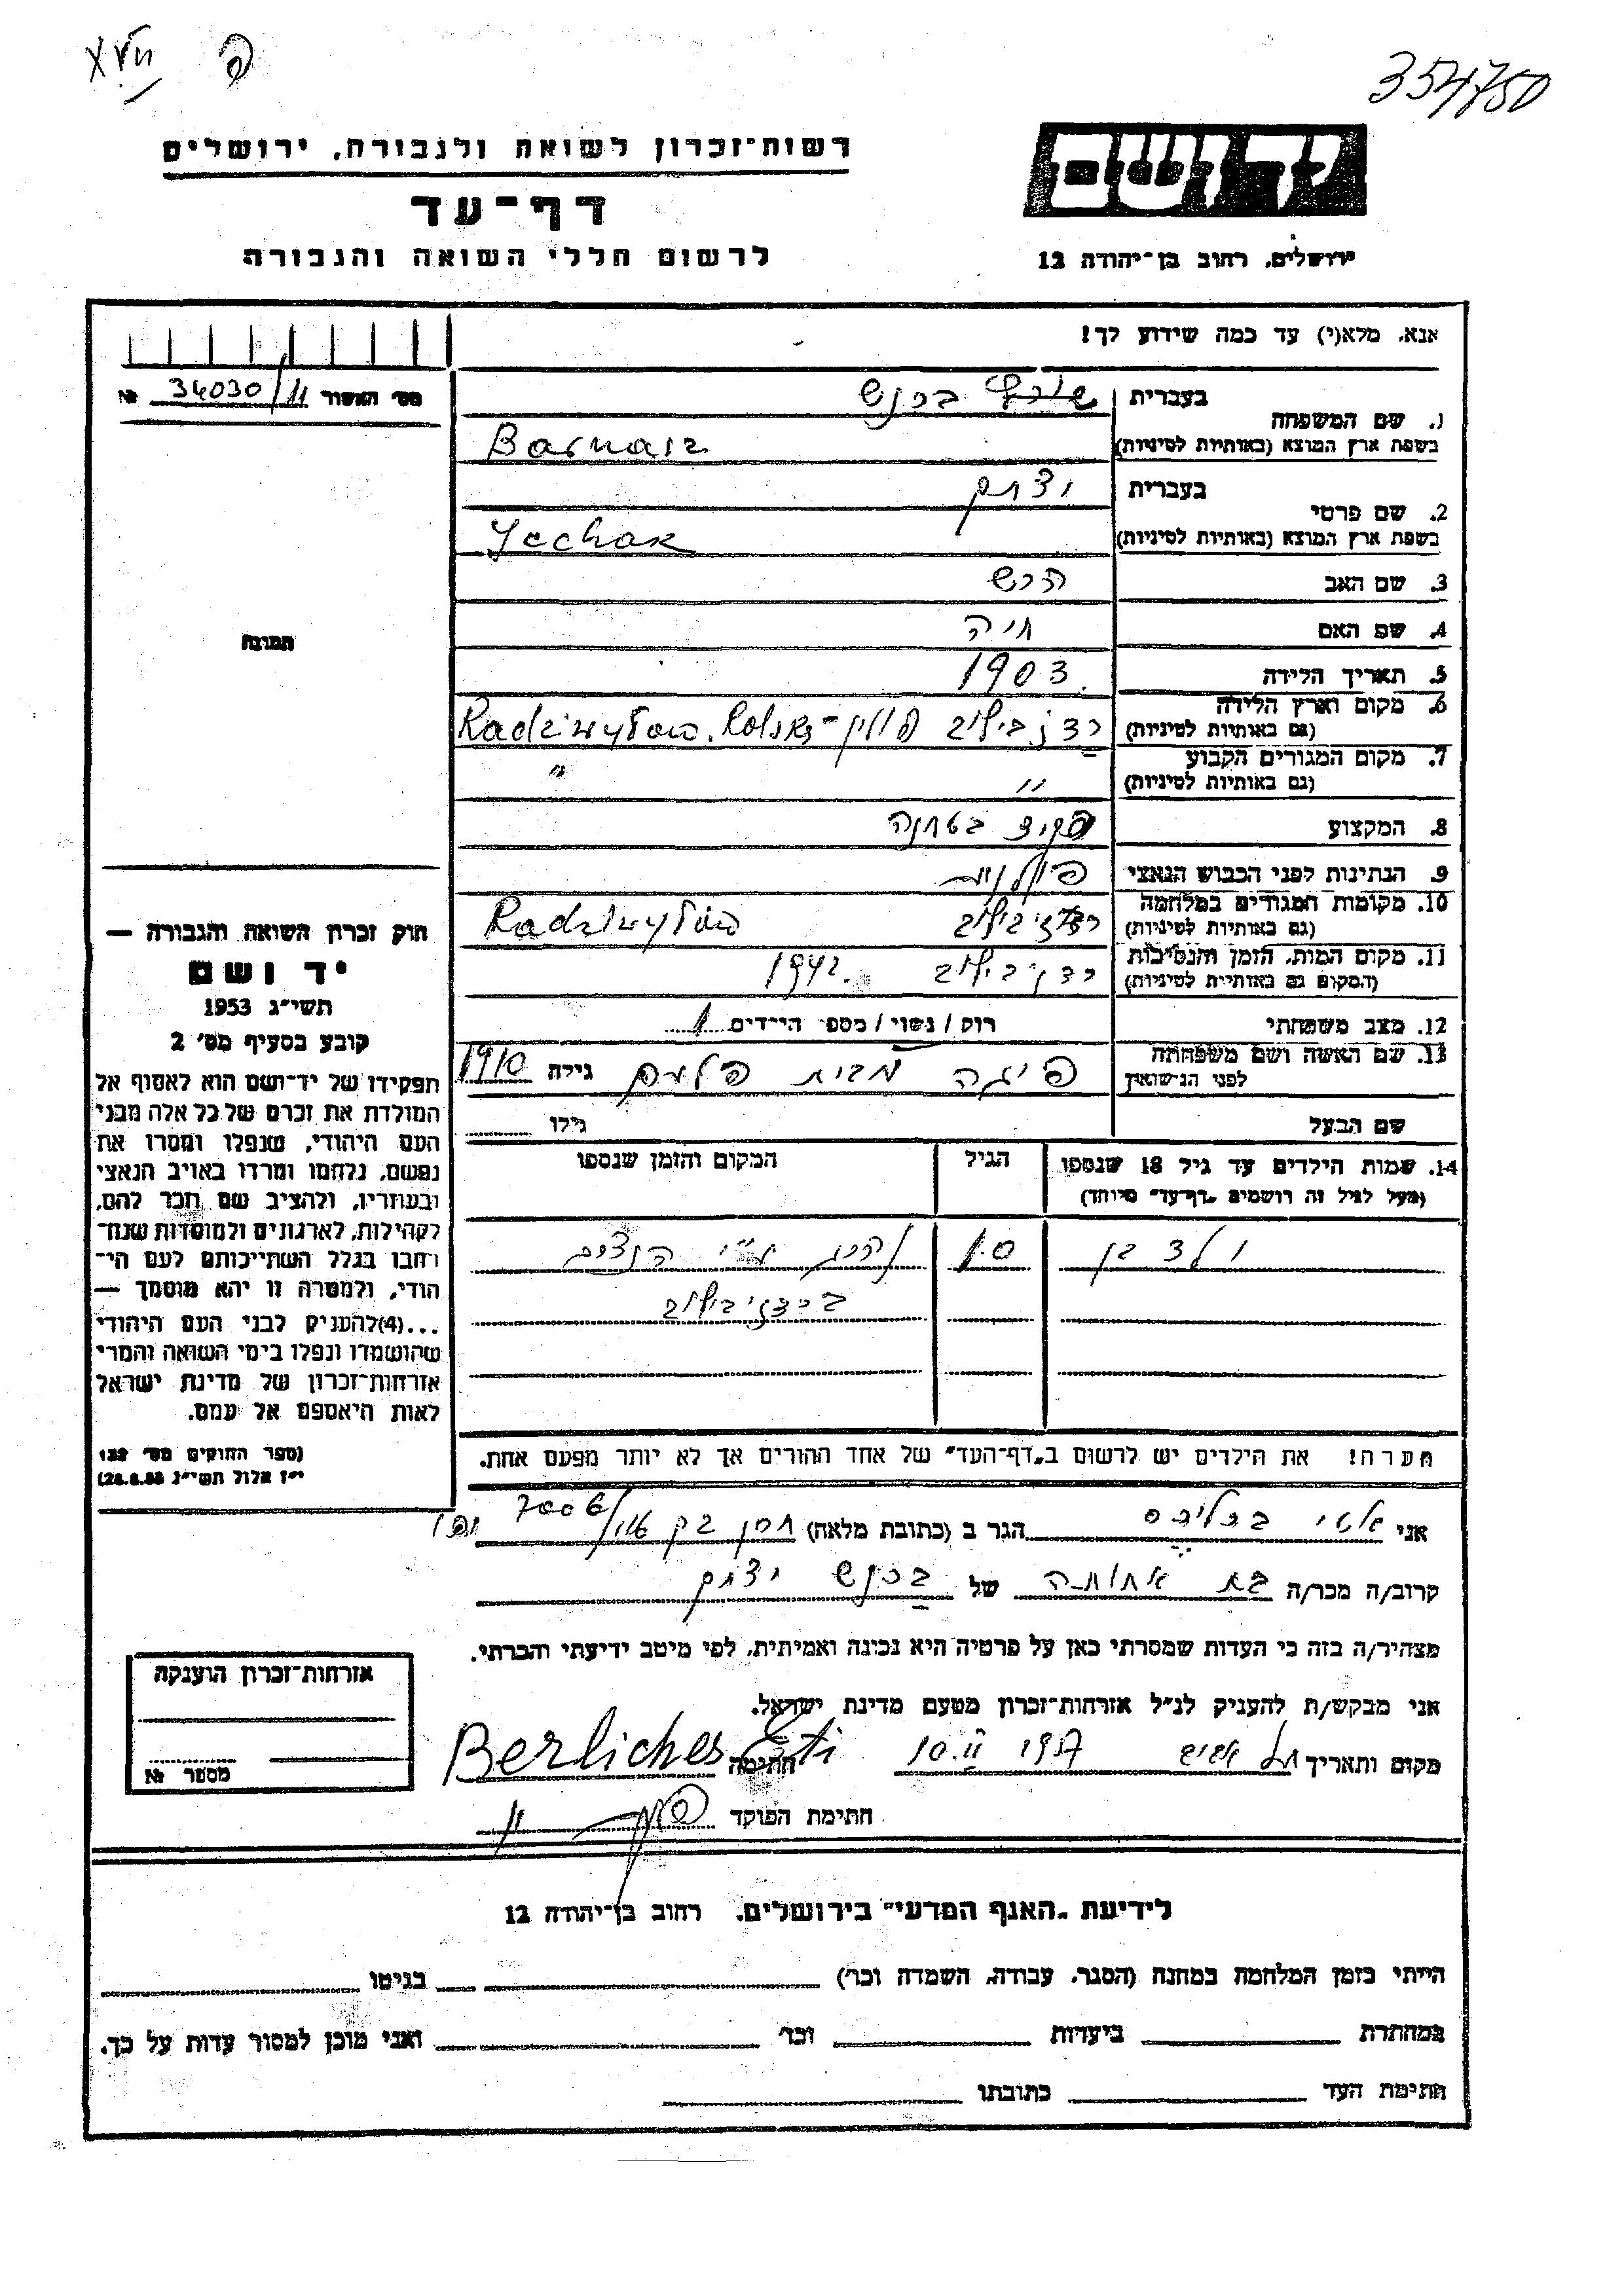 354750
רשות־זכרון לשואה ולגבורה, ירושלים
יד ושם
דף־עד
לרשום חללי השואה והגבורה
ירושלים, רחוב בן־יהודה 12
אנא, מלא(י) עד כמה שידוע לך!
מס׳ האשור 34030/11 №
1. שם המשפחה
בעברית ברנש
בשפת ארץ המוצא (באותיות לטיניות) Barnasz
2. שם פרטי
בעברית יצחק
בשפת ארץ המוצא (באותיות לטיניות) Icchak
3. שם האב הרש
4. שם האם חיה
5. תאריך הלידה 1903
6. מקום וארץ הלידה
(גם באותיות לטיניות) רדזיבילוב פולין – Radziwyłów, Polska
7. מקום המגורים הקבוע
(גם באותיות לטיניות) " "
8. המקצוע פקיד בטחנה
9. הנתינות לפני הכבוש הנאצי פולנית
10. מקומות המגורים במלחמה
(גם באותיות לטיניות) רדזיבילוב Radziwyłów
11. מקום המות, הזמן והנסיבות
(המקום גם באותיות לטיניות) רדזיבילוב 1942
12. מצב משפחתי רווק/נשוי/מספר הילדים 1
13. שם האשה ושם משפחתה
לפני הנישואין פיגה מבית גילה 1910
שם הבעל גילו
14. שמות הילדים עד גיל 18 שנספו
(מעל לגיל זה רושמים "דף־עד" מיוחד)
הגיל
המקום והזמן שנספו
ילד בן 10 נהרג ע"י הנאצים
ברדזיבילוב
הערה! את הילדים יש לרשום ב"דף־העד" של אחד ההורים אך לא יותר מפעם אחת.
תמונה
חוק זכרון השואה והגבורה —
יד ושם
תשי״ג 1953
קובע בסעיף מס׳ 2
תפקידו של יד־ושם הוא לאסוף אל
המולדת את זכרם של כל אלה מבני
העם היהודי, שנפלו ומסרו את
נפשם, נלחמו ומרדו באויב הנאצי
ובעוזריו, ולהציב שם וזכר להם,
לקהילות, לארגונים ולמוסדות שנח־
רבו בגלל השתייכותם לעם הי־
הודי, ולמטרה זו יהא מוסמך —
...(4)להעניק לבני העם היהודי
שהושמדו ונפלו בימי השואה והמרי
אזרחות־זכרון של מדינת ישראל
לאות היאספם אל עמם.
(ספר החוקים מס׳ 132
י״ז אלול תשי״ג 28.8.53)
אני אטי ברליכס הגר ב (כתובת מלאה)
קרוב/ה מכר/ה בת אחותה של ברנש יצחק
מצהיר/ה בזה כי העדות שמסרתי כאן על פרטיה היא נכונה ואמיתית, לפי מיטב ידיעתי והכרתי.
אני מבקש/ת להעניק לנ״ל אזרחות־זכרון מטעם מדינת ישראל.
מקום ותאריך תל אביב חתימה Berliches Esti
חתימת הפוקד
אזרחות־זכרון הוענקה
מספר №
לידיעת "האגף המדעי" בירושלים, רחוב בן־יהודה 12
הייתי בזמן המלחמה במחנה (הסגר, עבודה, השמדה וכו׳) בגיטו
במחתרת ביערות וכו׳ ואני מוכן למסור עדות על כך.
חתימת העד כתובתו